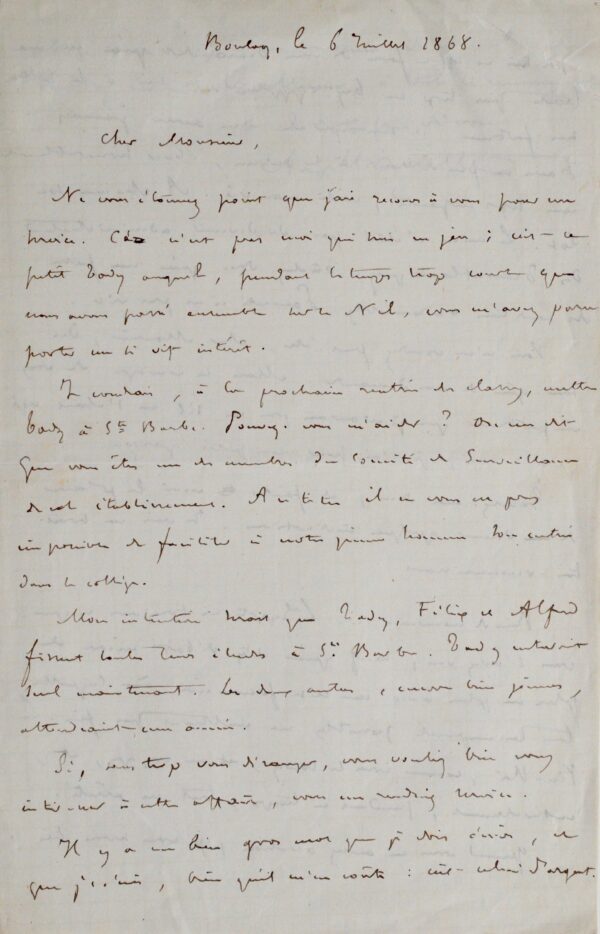 Boulaq, le 6 Juillet 1868.
Cher Monsieur,
Ne vous étonnez point que j'aie recours à vous pour un
service. Ce n'est pas moi qui suis en jeu ; c'est ce
petit Tady auquel, pendant le temps trop court que
nous avons passé ensemble sur le Nil, vous m'avez paru
porter un si vif intérêt.
Je voudrais, à la prochaine rentrée des classes, mettre
Tady à Ste Barbe. Pouvez-vous m'aider ? On me dit
que vous êtes un des membres du Comité de Surveillance
de cet établissement. A ce titre il ne vous est pas
impossible de faciliter à notre jeune homme son entrée
dans le collège.
Mon intention serait que Tady, Félix et Alfred
fissent toutes leurs études à Ste Barbe. Tady entrerait
seul maintenant. Les deux autres, encore bien jeunes,
attendraient une année.
Si, sans trop vous déranger, vous vouliez bien vous
intéresser à cette affaire, vous me rendriez service.
Il y a un bien gros mot que je dois écrire, et
que j'écris, bien qu'il m'en coûte : c'est celui d'argent.